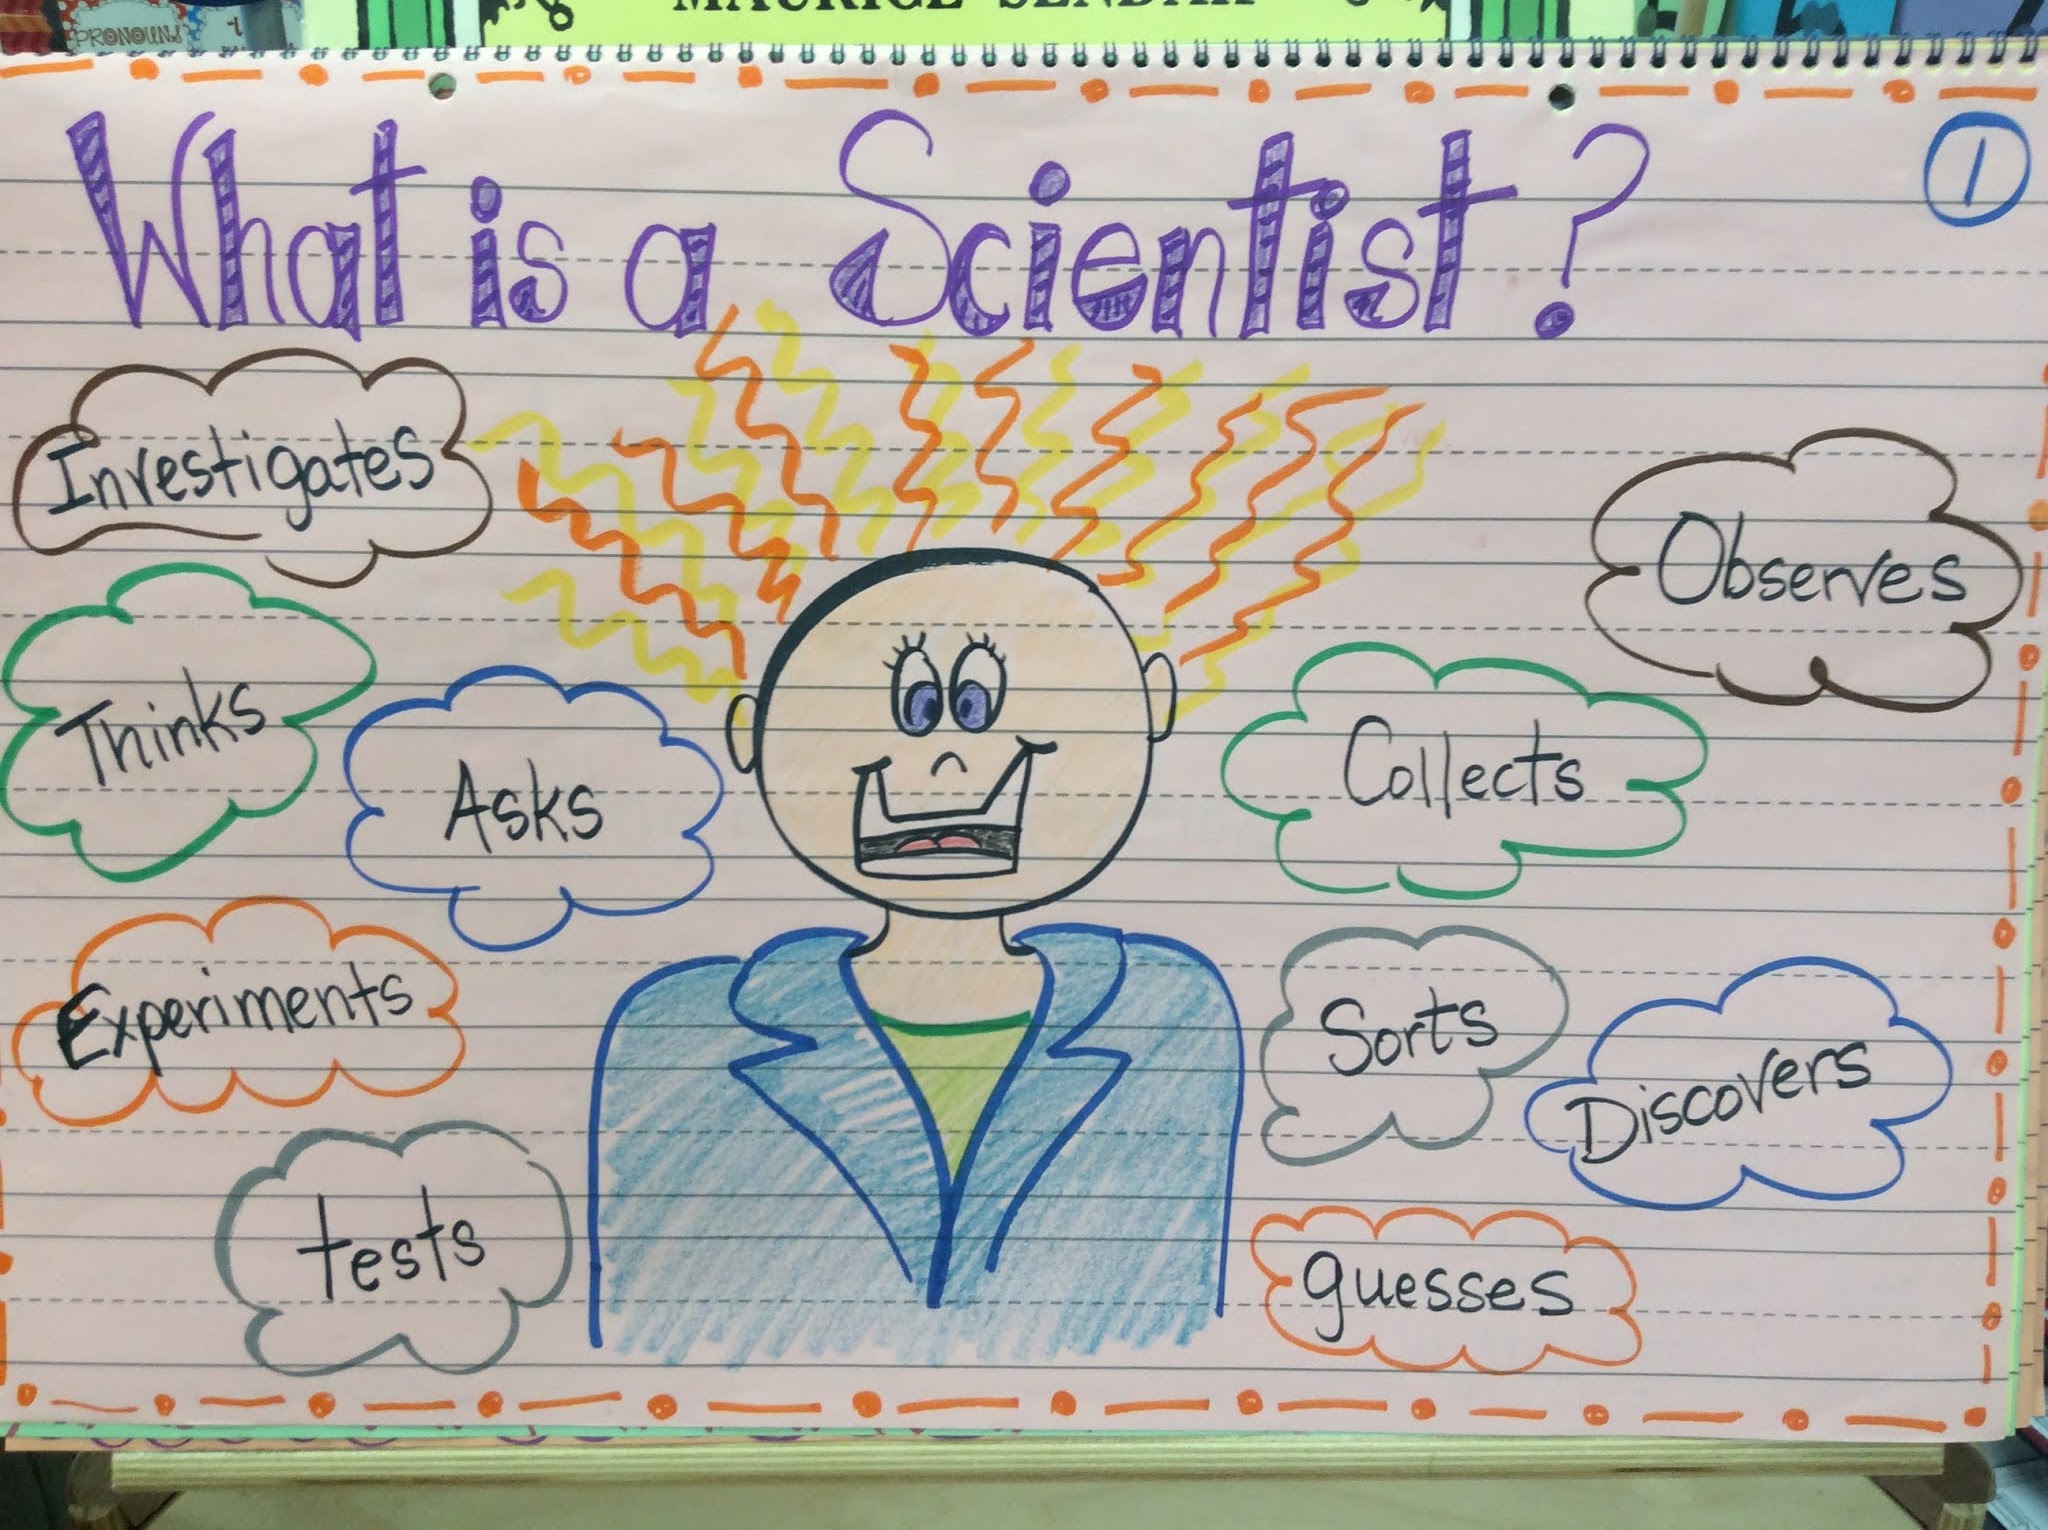 PRONOUNS
MAURICE SENDAK
What is a Scientist?
1
Investigates
Observes
Thinks
Asks
Collects
Experiments
Sorts
Discovers
tests
guesses